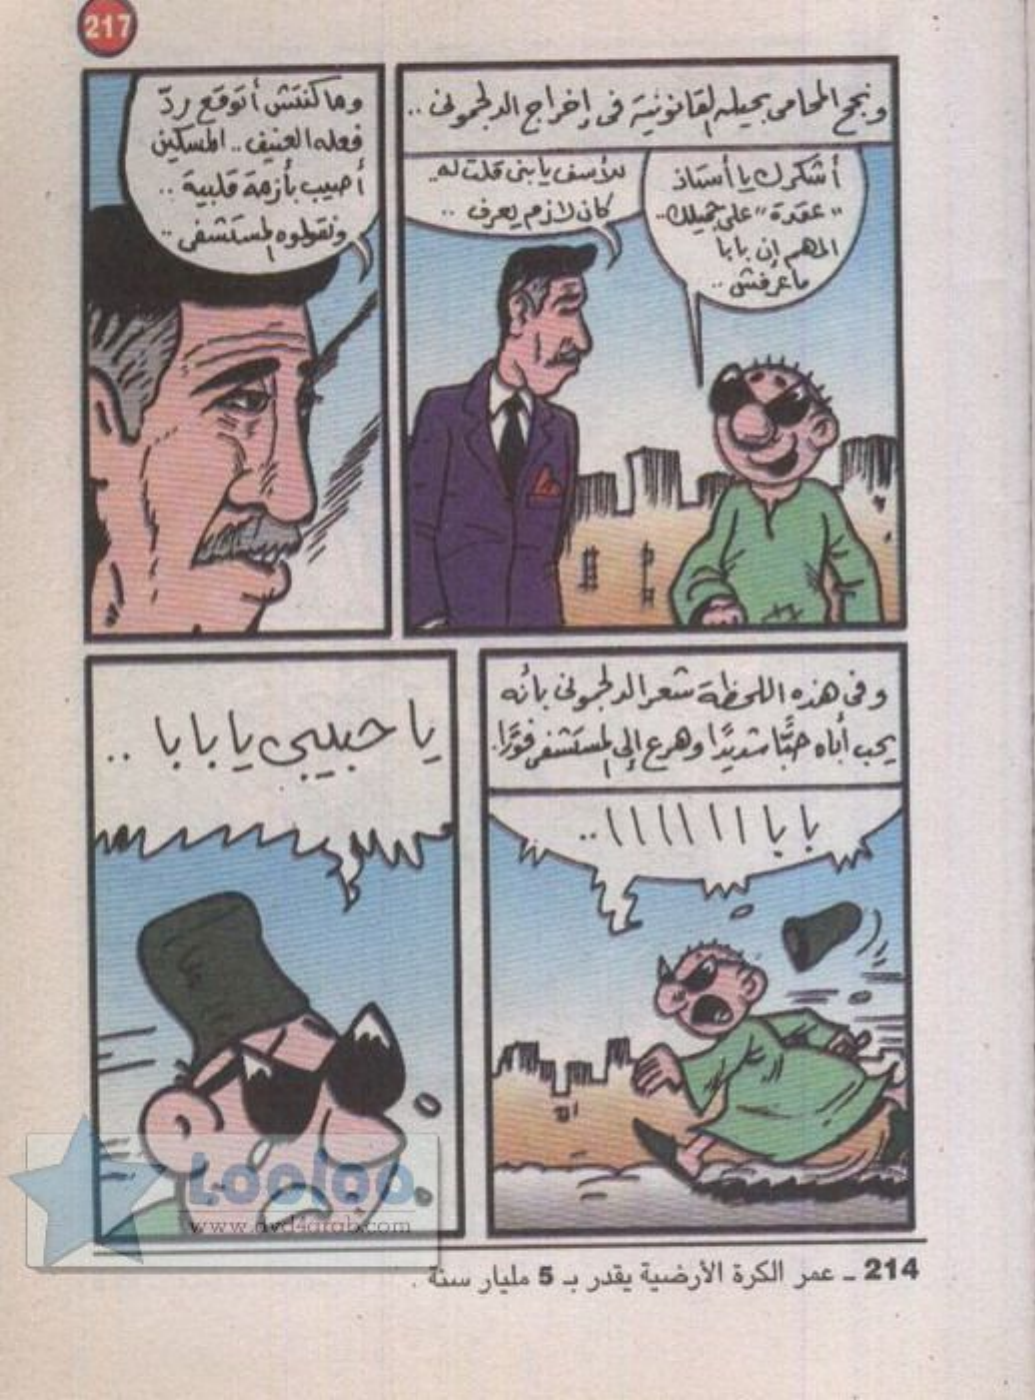 217
ونجح المحامى بحيله القانونية فى إخراج الدلجمونى ..
أشكرك يا أستاذ
"عقدة" على جميلك..
المهم إن بابا
ماعرفش ..
للأسف يا بنى قلت له..
كان لازم يعرف ..
وما كنتش أتوقع ردّ
فعله العنيف .. المسكين
أصيب بأزمة قلبية ..
ونقلوه المستشفى ..
وفى هذه اللحظة شعر الدلجمونى بأنه
يحب أباه حبًّا شديدًا وهرع إلى المستشفى فورًا.
بابا ا ا ا ا ا ا ..
يا حبيبى يا بابا ..
Looloo
www.dvd4arab.com
214 ـ عمر الكرة الأرضية يقدر بـ 5 مليار سنة .